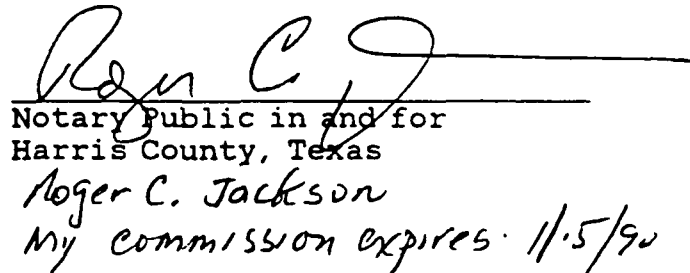 Roger C. J
Notary Public in and for
Harris County, Texas
Roger C. Jackson
My commission expires. 11.5/90